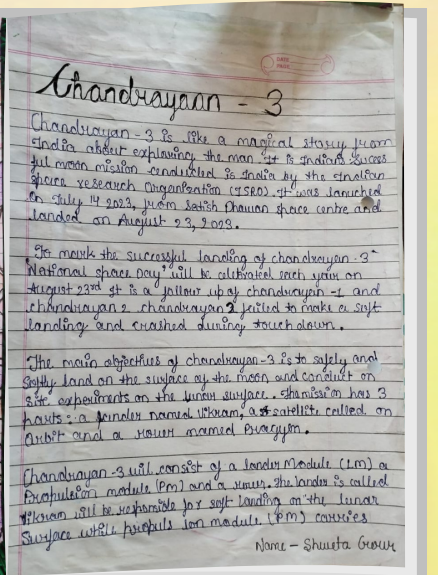 DATE
PAGE
Chandrayaan - 3
Chandrayan - 3 is like a magical story from
India about explowing the man. It is Indian's succes
ful moon mission conducted is India by the Indian
space research Organization (ISRO). It was lanuched
on July 14 2023, from Satish Dhawan space centre and
landed on August 23, 2023.
To mark the successful landing of chandrayan - 3
'National space Day' will be celebrated each year on
August 23rd It is a follow up of chandrayan - 1 and
chandrayan 2 chandrayan 2 failed to make a soft
landing and crashed during touchdown.
The main objectives of chandrayan - 3 is to safely and
Softly land on the surface of the moon and conduct on
site experiments on the lunar surface. The mission has 3
parts: a lander named Vikram, a satellite called on
orbit and a rover named Pragyan.
Chandrayan - 3 will consist of a lander Module (LM) a
Propulsion module (PM) and a rover. The lander is called
Vikram will be responsible for soft landing on the lunar
Surface while propuls ion module (PM) carries
Name - Shweta Grour